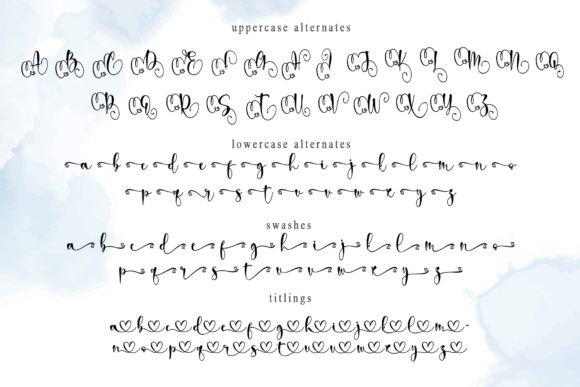 uppercase alternates
A B C D E F G H I J K L M N O
P Q R S T U V W X Y Z
lowercase alternates
a b c d e f g h i j k l m n o
p q r s t u v w x y z
swashes
a b c d e f g h i j k l m n o
p q r s t u v w x y z
titlings
a b c d e f g h i j k l m -
n o p q r s t u v w x y z